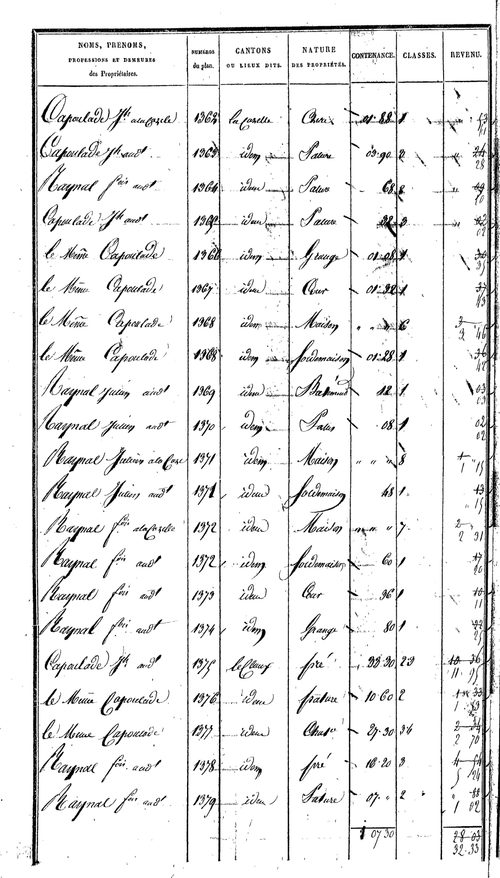 NOMS, PRENOMS, PROFESSIONS ET DEMEURES des Propriétaires. NUMÉROS du plan. CANTONS OU LIEUX DITS. NATURE DES PROPRIÉTÉS. CONTENANCE. CLASSES. REVENU.
Capoulade Jh a la Cazelle 1362 la cazelle 01.88 1
Capoulade Jh audt 1363 idem Pature 03.90 2
Raynal fois audt 1364 idem Patus 68 2
Capoulade Jh audt 1365 idem Pature 3
le Même Capoulade 1366 idem Grange 01.08 1
le Même Capoulade 1367 idem Cour 01.32 1
le Même Capoulade 1368 idem Maison " " " 6
le Même Capoulade 1368 idem Soldemaison 01.28 1
Raynal Julien audt 1369 idem Batiment 42 1
Raynal Julien audt 1370 idem Patus 08 1
Raynal Julien a la Caze 1371 idem Maison " " " 8 1 15
Raynal Julien audt 1371 idem Soldemaison 48 1 " 15
Raynal fois a la Cazelle 1372 idem Maison " " " 7 2 31
Raynal fois audt 1372 idem Soldemaison 60 1 20
Raynal fois audt 1373 idem Cour 36 1 11
Raynal fois audt 1374 idem Grange 80 1 25
Capoulade Jh audt 1375 pré 33.30 23 11 95
le Même Capoulade 1376 idem pature 10 60 2
le Même Capoulade 1377 idem 27.30 34 2 70
Raynal fois audt 1378 idem pré 16.20 3
Raynal fois audt 1379 idem Pature 07 " 2 1 02
1 07 30 28 03
32.33